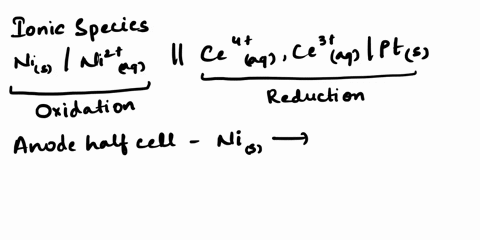 Ionic Species
Ni(s) / Ni²⁺(aq) || Ce⁴⁺(aq), Ce³⁺(aq) | Pt(s)
Oxidation Reduction
Anode half cell - Ni(s) ⟶